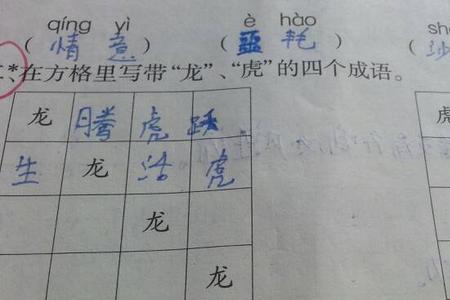 qíng yì è hào sh
（情意）（噩耗）（沙
*、在方格里写带“龙”、“虎”的四个成语。
龙腾虎跃 虎
生龙活虎
龙
龙